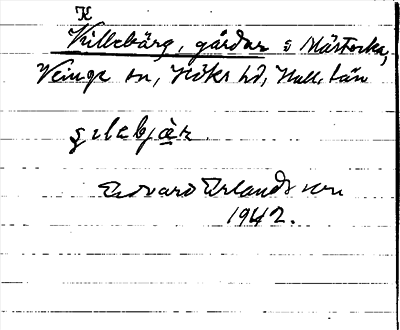 K
Killebärg, gårdar i Mästocka,
Veinge sn, Höks hd, Hall. län
Edvard Erlandsson
1942.